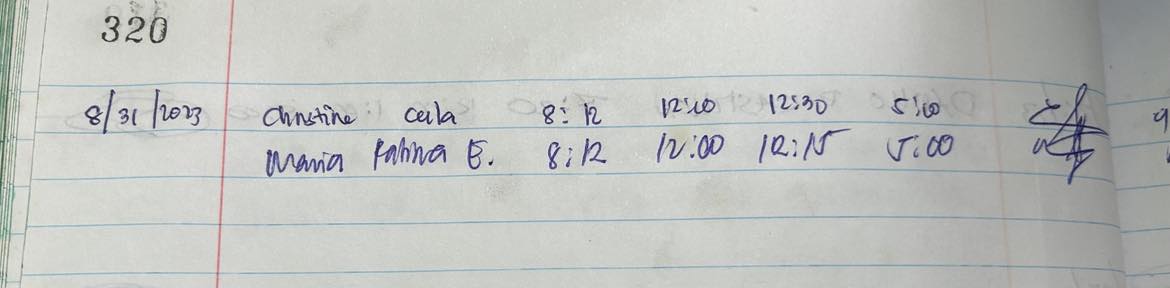 320
8/31/2023 Christine Ceila 8:12 12:00 12:30 5:00
Maria Fatima E. 8:12 12:00 12:15 5:00